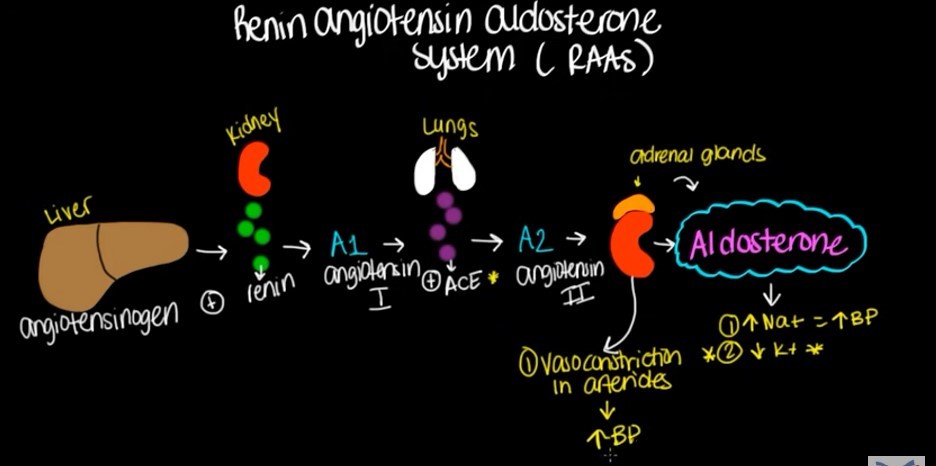 Renin angiotensin aldosterone
System (RAAS)
Kidney
Lungs
adrenal glands
Liver
A1
A2
Aldosterone
angiotensinogen
+
renin
angiotensin
I
+ ACE *
angiotensin
II
① ↑ Na+ = ↑BP
*② ↓ K+ *
① Vasoconstriction
in arterioles
↓
↑BP